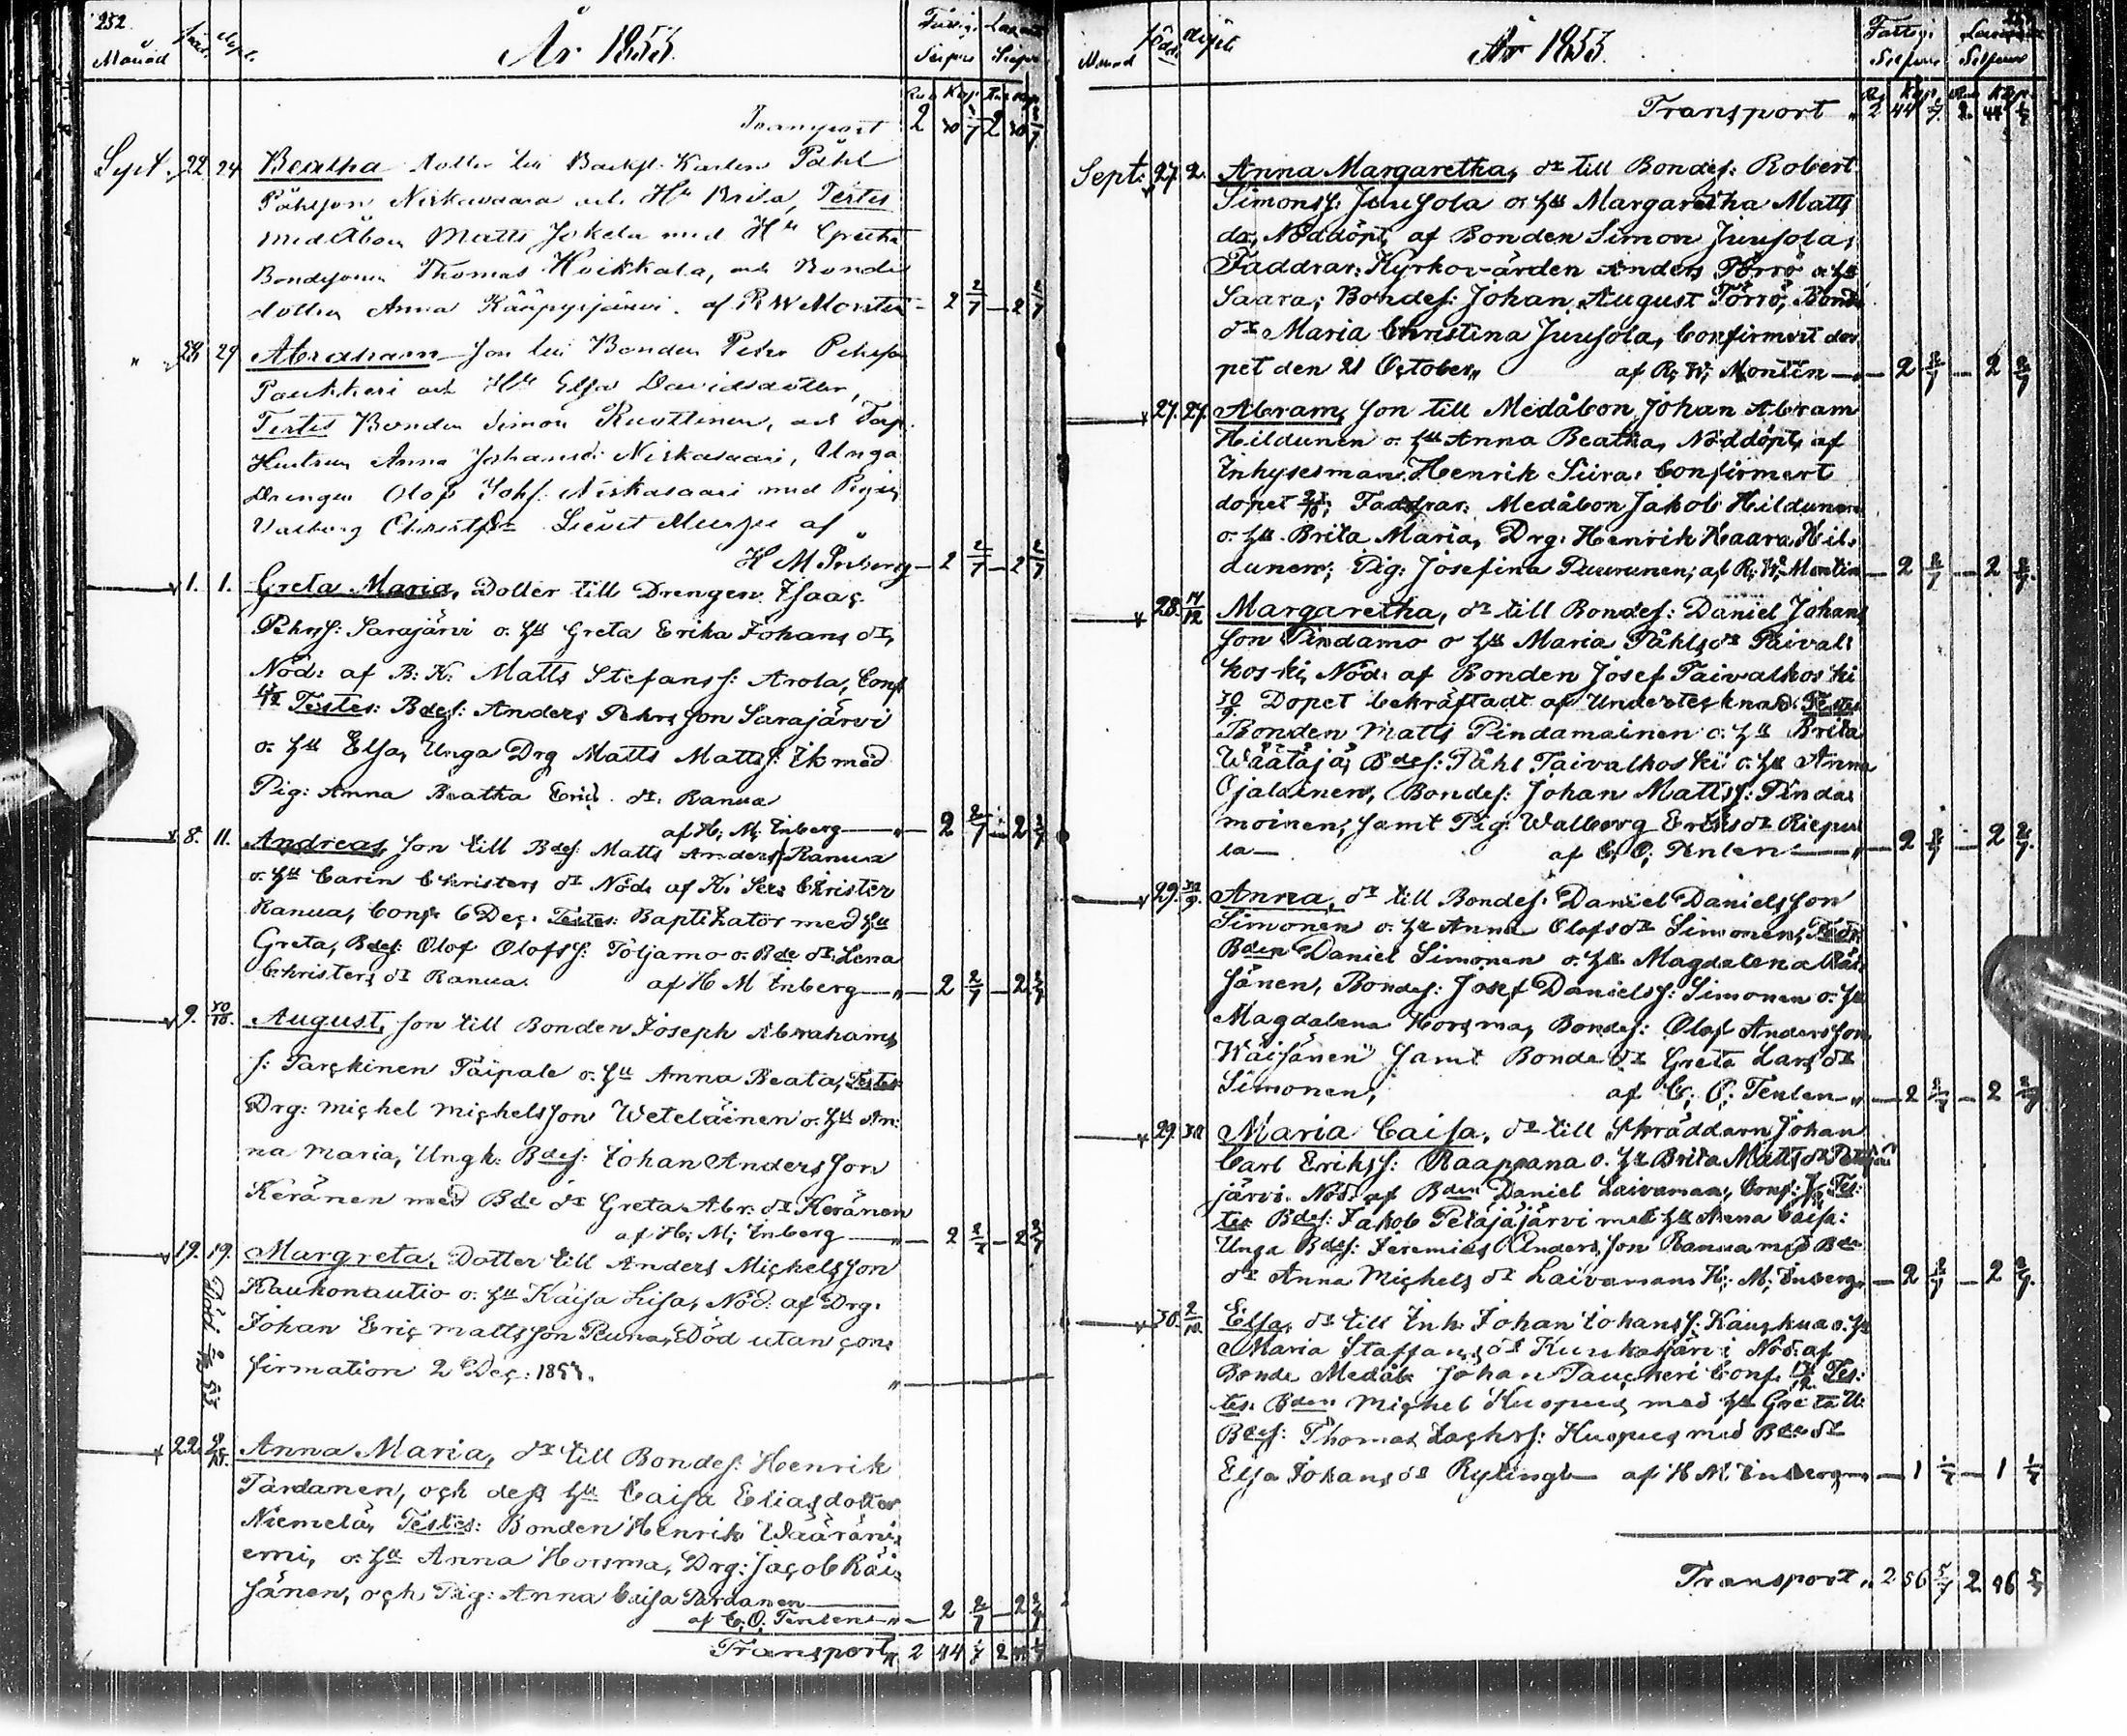 252.
Månad
År 1853.
Transport 2
Sept. 22 24 Beatha dotter till Påhl
Påhlsson Niskavaara och Hu Brita, Testes
Medåbon Matts Jokela med Hu Greeta
Bondesonen Thomas Hoikkala, och Bonde
dottern Anna af R W Montin 2 2/7 2 2/7
" 28 29 Abraham Son till Bonden Petter Pehrson
Paukkeri och Hu Elsa Davidsdotter,
Testes Bonden Simon Ruottinen, och Torp.
Hustrun Anna Johansd: Niskasaari, Unga
Drengen Olof Johs. Niskasaari med Pigan
Valborg af
H M Enberg 2 2/7 2 2/7
1. 1. Greta Maria, Dotter till Drengen Isaac
Pehrss: Sarajärvi o. Hu Greta Erika Johans dr,
Nöd: af B: K: Matts Stefanss: Arola, Conf
Testes: Bdes: Anders Pehrsson Sarajärvi
o. Hu Elsa, Unga Drg Matts Mattss: med
Pig: Anna Beatha dr. Ranua
af H: M: Enberg 2 2/7 2 2/7
8. 11. Andreas, Son till Bdes Matts Anderss Ranua
o. Hu Carin Christers dr Nöd: af K: Christer
Ranua, Conf: 6 Dec: Testes: Baptizator med Hu
Greta, Bdes: Olof Olofss: Töljamo o. Bde dr. Lena
Christers dr Ranua. af H M Enberg 2 2/7 2 2/7
9. 10/10. August, Son till Bonden Joseph Abrahams
s: Tarckinen Päipale o. Hu Anna Beata, Testes
Drg: Michel Michelsson Weteläinen o. Hu An:
na Maria, Ungk: Bdes: Johan Andersson
Keränen med Bde dr Greta Abr: dr Keränen
af H: M: Enberg 2 2/7 2 2/7
19. 19. Margreta, Dotter till Anders Michelsson
Kaukonautio o. Hu Kaisa Lisa, Nöd: af Drg:
Johan Eric Mattsson Död utan con:
firmation 2 Dec: 1853.
Död 53
22. Anna Maria, dr till Bondes: Henrik
Tardanen, och dess Hu Caisa Eliasdotter
Niemelä, Testes: Bonden Henrik Wääräni:
emi, o. Hu Anna Horsma, Drg: Jacob Räi:
sänen, och Pig: Anna Caisa Tardanen
af C. O. Tenlen 2 2/7 2 2/7
Transport 2 44 1/7 2 44 1/7
Månad Född döpt
År 1853.
Fattigs Silfver
Transport 2 44 1/7 2 44 1/7
Sept: 27. 2. Anna Margaretha, dr till Bondes: Robert
Simonss: Juusola o. Hu Margaretha Matts
dr, Nöddöpt, af Bonden Simon Juusola,
Faddrar: Kyrkovärden Anders Törrö o Hu
Saara; Bondes: Johan August Törrö, Bonde
dr Maria Christina Juusola, Confirmert do:
pet den 21 October, af R: W: Montin 2 2/7 2 2/7
27. 27. Abram, Son till Medåbon Johan Abram
Hildunen o. Hu Anna Beatha, Nöddöpt, af
Inhysesman Henrik Siira: Confirmert
dopet Faddrar: Medåbon Jakob Hildunen
o. Hu Brita Maria, Drg: Henrik Kaara Hil:
dunen; Pig: Josefina Puurunen; af R: W: Montin 2 2/7 2 2/7
28. 14/12 Margaretha, dr till Bondes: Daniel Johans
son Pindamo o Hu Maria Påhls dr Taival:
koski, Nöd: af Bonden Josef Taivalkoski
30/9. Dopet bekräftadt af Undertecknad: Testes
Bonden Matts Pindamoinen o. Hu Brita
Väätäjä; Bdes: Påhl Taivalkoski o. Hu Anna
Ojalainen, Bondes: Johan Mattss: Pinda:
moinen, samt Pig: Walborg Eriks dr Riepu
la af C. O. Tenlen 2 2/7 2 2/7
29. Anna, dr till Bondes: Daniel Danielsson
Simonen o. Hu Anna Olofs dr Simonen, Fadr:
Bden Daniel Simonen o. Hu Magdalena
sänen, Bondes: Josef Danielss: Simonen o. Hu
Magdalena Horsma, Bondes: Olof Andersson
Wäisänen samt Bonde dr Greta Lars dr
Simonen, af C. O. Tenlen 2 2/7 2 2/7
29. 30 Maria Caisa, dr till Skräddarn Johan
Carl Erikss: Raappana o. Hu Brita Matts dr
järvi. Nöd: af Bden Daniel Laivamaa, Conf: Tes:
tes Bdes: Jakob Petäjäjärvi med Hu Anna Caisa:
Unga Bdes: Jeremias Andersson Ranua med Bde
dr Anna Michels dr Laivamaa H: M: Enberg 2 2/7 2 2/7
30. 2/10. Elsa, dr till Inh: Johan Johanss: o. Hu
Maria Staffans dr Nöd: af
Bonde Medåb: Johan Conf. Tes:
tes. Bden Michel med Hu Greta U:
Bdes: Thomas Zachrs: med Bde dr
Elsa Johans dr af H M Enberg 1 1/7 1 1/7
Transport 2 56 5/7 2 56 5/7